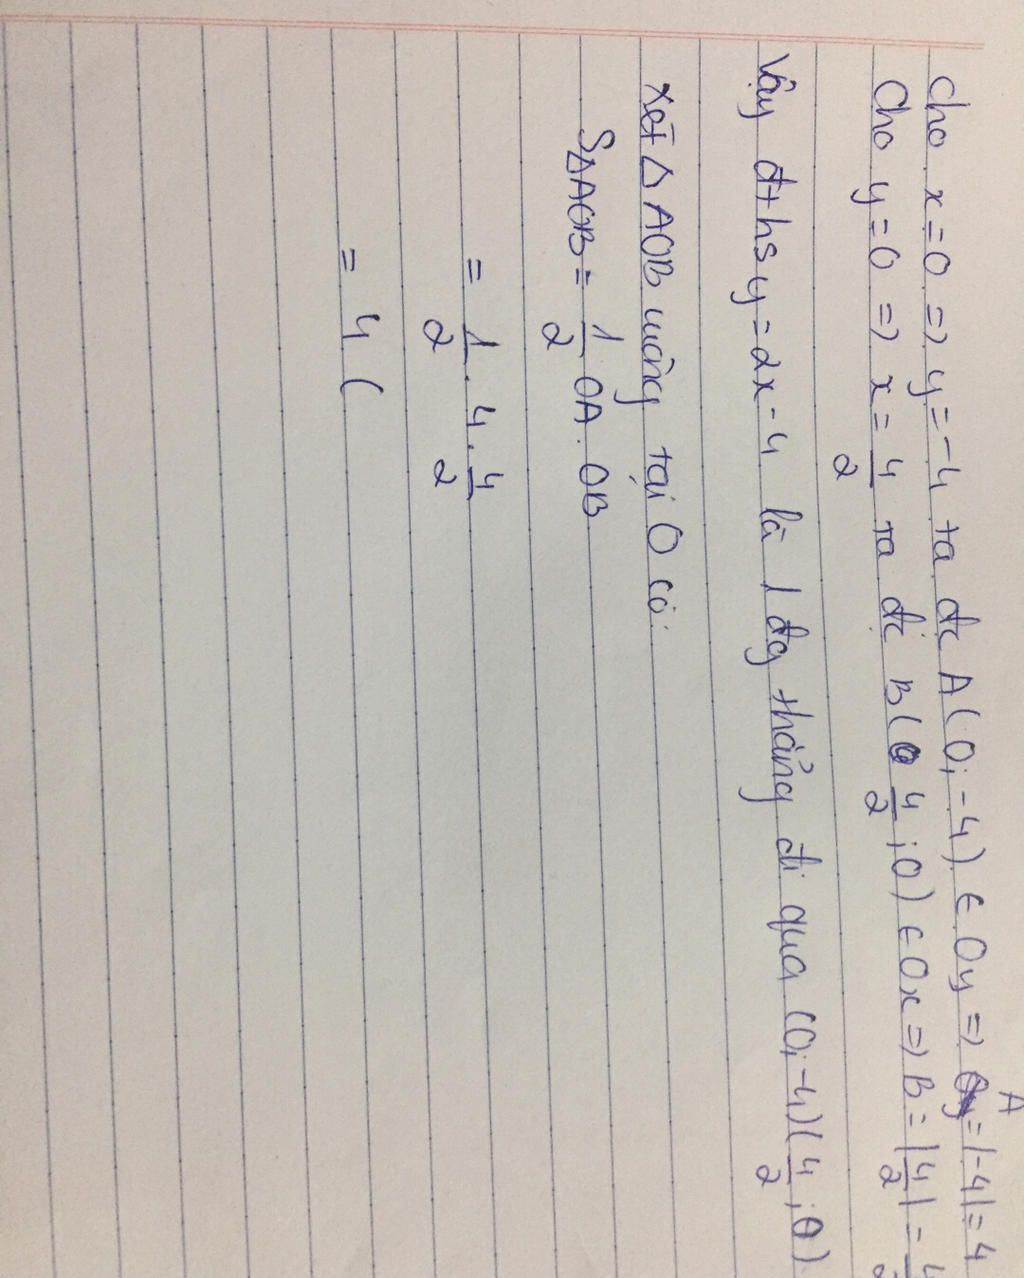 Cho x=0 => y=-4 ta đc A(0;-4) ∈ Oy => A = |-4| = 4
Cho y=0 => x=4/2 ta đc B(4/2;0) ∈ Ox => B = |4/2| =
Vậy đths y=2x-4 là 1 đg thẳng đi qua (0;-4)(4/2;0)
Xét Δ AOB vuông tại O có:
SΔAOB = 1/2 OA.OB
= 1/2 . 4 . 4/2
= 4 (